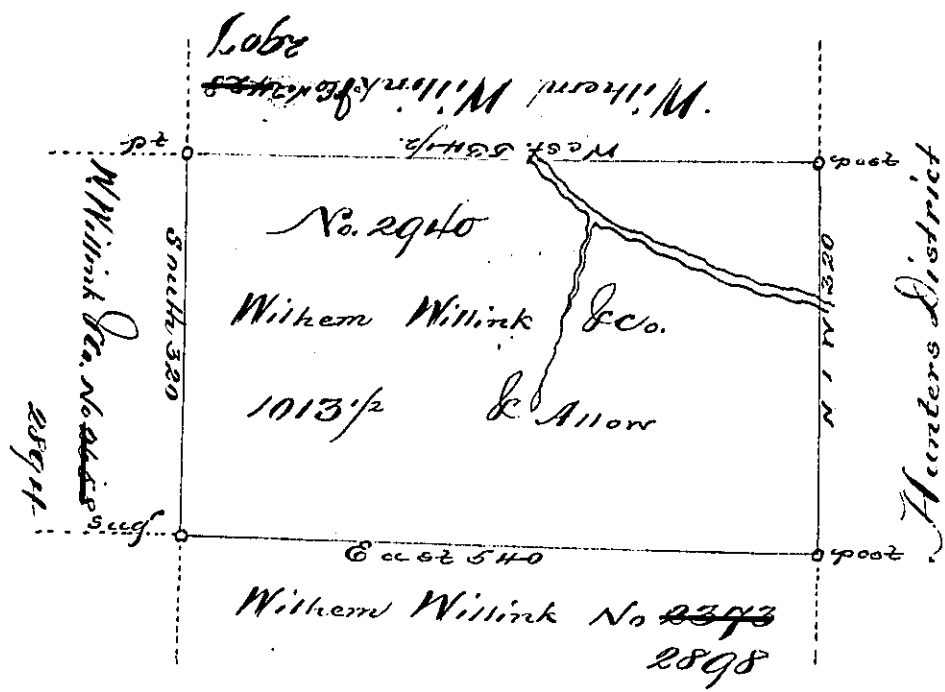 2907
Wilhem Willink &Co No 2428
West 534 1/2
post
No. 2940
Wilhem Willink &Co.
1013 1/2 & Allow
South 320
W Willink &Co. No
2894
sug'
N 1 W 320
Hunters District
East 540
post
Wilhem Willink No 2373
2898